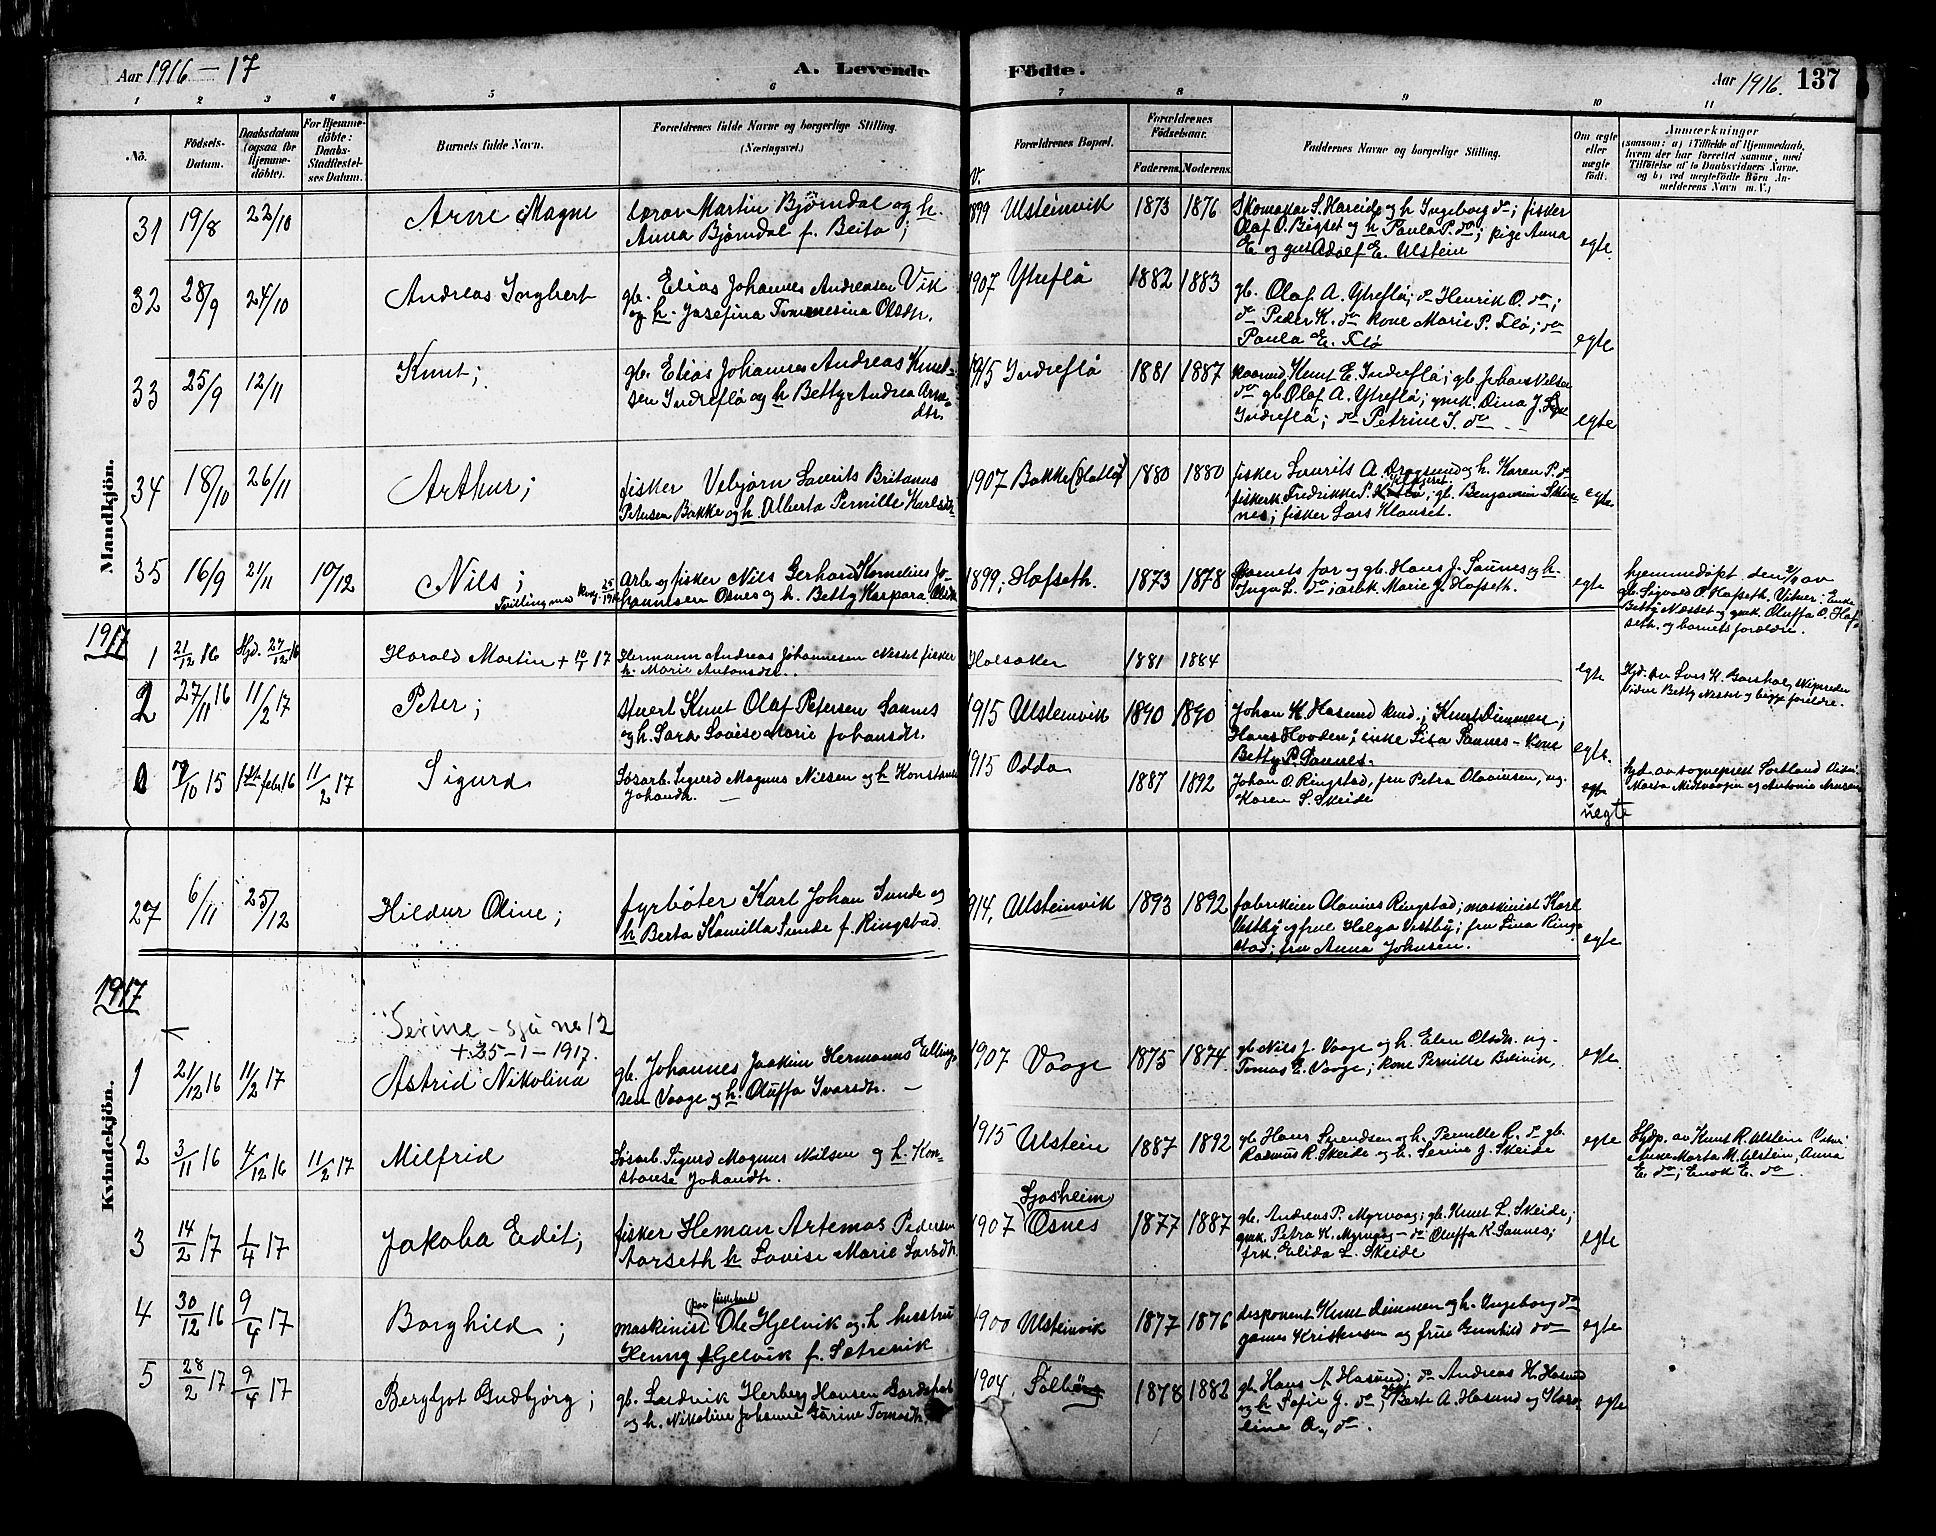 Aar 1916 – 17
A. Levende
Födte.
Aar 1916.
137
1 2 3 4 5 6 7 8 9 10 11
No.
Födsels-Datum.
Daabsdatum (ogsaa for Hjemme-döbte).
For Hjemme-döbte: Daabs-Stadfæstel-ses Datum.
Barnets fulde Navn.
Forældrenes fulde Navne og borgerlige Stilling. (Næringsvei.)
V.
Forældrenes Bopæl.
Forældrenes Födselsaar.
Faderens. Moderens.
Faddernes Navne og borgerlige Stilling.
Om ægte eller uægte födt.
Anmærkninger
(saasom: a) i Tilfælde af Hjemmedaab, hvem der har forrettet samme, med Tilföielse af to Daabsvidners Navne, og b) ved uægtefödte Börn An-melderens Navn m. V.)
Mandkjön.
31 19/8 22/10 Arne Magne
lærer Martin Bjørndal og h.
Anna Bjørndal f. Beito;
1899 Ulsteinvik 1873 1876
Skomaker S. Hareide og h Ingeborg do; fisker
Olaf O. Bigset og h Paula P. do; pige Anna
E. og gut Adolf E. Ulstein
egte.
32 28/9 24/10 Andreas Ingbert
gb. Elias Johannes Andreasen Vik
og h. Josefina Tommesina Olsdtr.
1907 Ytreflø 1882 1883
gb. Olaf A. Ytreflø; do Henrik O. do;
do Peder K. do kone Marie P. Flø; do
Paula E. Flø
egte
33 25/9 12/11 Knut;
gb. Elias Johannes Andreas Knut-
sen Indreflø og h Betty Andrea Arne-
dtr.
1915 Indreflø 1881 1887
kaarmd Knut E. Indreflø; gb. Johas Nilsen
do gb Olaf A. Ytreflø; pik. Dina J.
Indreflø; do Petrine I. do
egte
34 18/10 26/11 Arthur;
fisker Vebjørn Laurits Britanus
Petersen Bakke og h. Alberta Pernille Karlsdtr
1907 Bakke (Hatlø) 1880 1880
fisker Laurits A Dragsund og h. Karen P. do
fiskerk. Fredrikke P. gb. Benjamin Skei-
nes; fisker Lars Klauset.
egte
35 16/9 21/11 10/12 Nils;
Tvilling med
Arb. og fisker Nils Gerhard Kornelius Jo-
hannesen Osnes og h. Betty Kaspara Olsdtr
1899, Hofseth. 1873 1878
Barnets far og gb. Hans J. Saunes og h.
Inga L. do; arbk. Marie J. Hofseth.
egte
hjemmedøpt den 2/11 av
gb. Sigvald O. Hofseth. Vitner: Enke
Betty Næsset og pik. Oluffa O. Hof-
seth. og barnets forældre.
1917
1 21/12 16 Hjd. 27/12 16 Harald Martin + 10/1 17
Hermann Andreas Johannesen Nesset fisker
h. Marie Antonsdtr.
Holsaker 1881 1884
egte
Hjd. av Lars K. Garshol, skipreder
Vidne Betty Nesset og begge foreldre.
2 27/11 16 11/2 17 Peter;
stuert Knut Olaf Petersen Saunes
og h. Sara Lovise Marie Johansdtr.
1915 Ulsteinvik 1890 1890
Johan K. Hasund knd.; Knut Dimmen;
Hans Hovden; enke Lisa Saunes – kone
Betty P. Saunes.
egte.
0 7/10 15 feb. 16 11/2 17 Sigurd
Løsarb. Sigurd Magnus Nilsen og h Konstanse
Johandtr.
1915 Odda 1887 1892
Johan O. Ringstad, fru Petra Olavinsen, og
Karen S. Skeide
egte
uegte
hjd. av sogneprest Sortland Vitn:
Marta Midtvaagen og Antonie
27 6/11 25/12 Hildur Oline;
fyrbøter Karl Johan Sunde og
h Berta Kamilla Sunde f. Ringstad.
1914, Ulsteinvik 1893 1892
fabrikeier Olavius Ringstad; maskinist Karl
Vestby og frue Helga Vestby; fru Lina Ring-
stad; fru Anna Johnsen.
egte
1917
Kvindekjön.
Serine – sjå nr 12
+ 25 – 1 – 1917.
1 21/12 16 11/2 17 Astrid Nikolina
gb. Johannes Joakim Hermanus Elling-
sen Vaage og h. Oluffa Ivarsdtr.
1907 Vaage 1875 1874.
gb Nils J. Vaage og h. Elen Olsdtr. og
Tomas E. Vaage; kone Pernille Botnvik,
egte.
2 3/11 16 4/12 16 11/2 17 Milfrid
Løsarb. Sigurd Magnus Nilsen og h. Kon-
stanse Johandtr.
1915 Ulstein 1887 1892
gb Hans Svendsen og h. Pernille R. do gb.
Rasmus R. Skeide og h. Serine J. Skeide
egte
Hjdp. av Knut R. Ulstein Vitn:
Ane Marta M. Ulstein, Anna
E. do; Enok E. do
3 14/2 17 1/4 17 Jakoba Edit;
fisker Heman Artemas Pedersen
Aarseth h Lovise Marie Larsdtr.
1907 Sjøsheim
Osnes 1877 1887
gb. Andreas P. Myrvaag; gb. Knut L. Skeide;
pik. Petra K. Myrvaag – do Oluffa K. Saunes;
frk. Elida L. Skeide
egte
4 30/12 16 9/4 17 Borghild;
maskinist Ole Hjelvik og h. hustru
Henny Hjelvik f. Sætrevik
1900 Ulsteinvik 1877 1876
disponent Knut Dimmen og h. Ingeborg do
James Kristensen og frue Gunhild do
egte
5 28/2 17 9/4 17 Bergljot Gudbjørg;
gb. Ludvik Herberg Hansen
og h. Nikoline Johanne Garine Tomasdtr.
1904 1878 1882
gb. Hans A Hasund; do Andreas H. Hasund
og h Sofie J. do; Berte A. Hasund og Karo-
line A. do.
egte